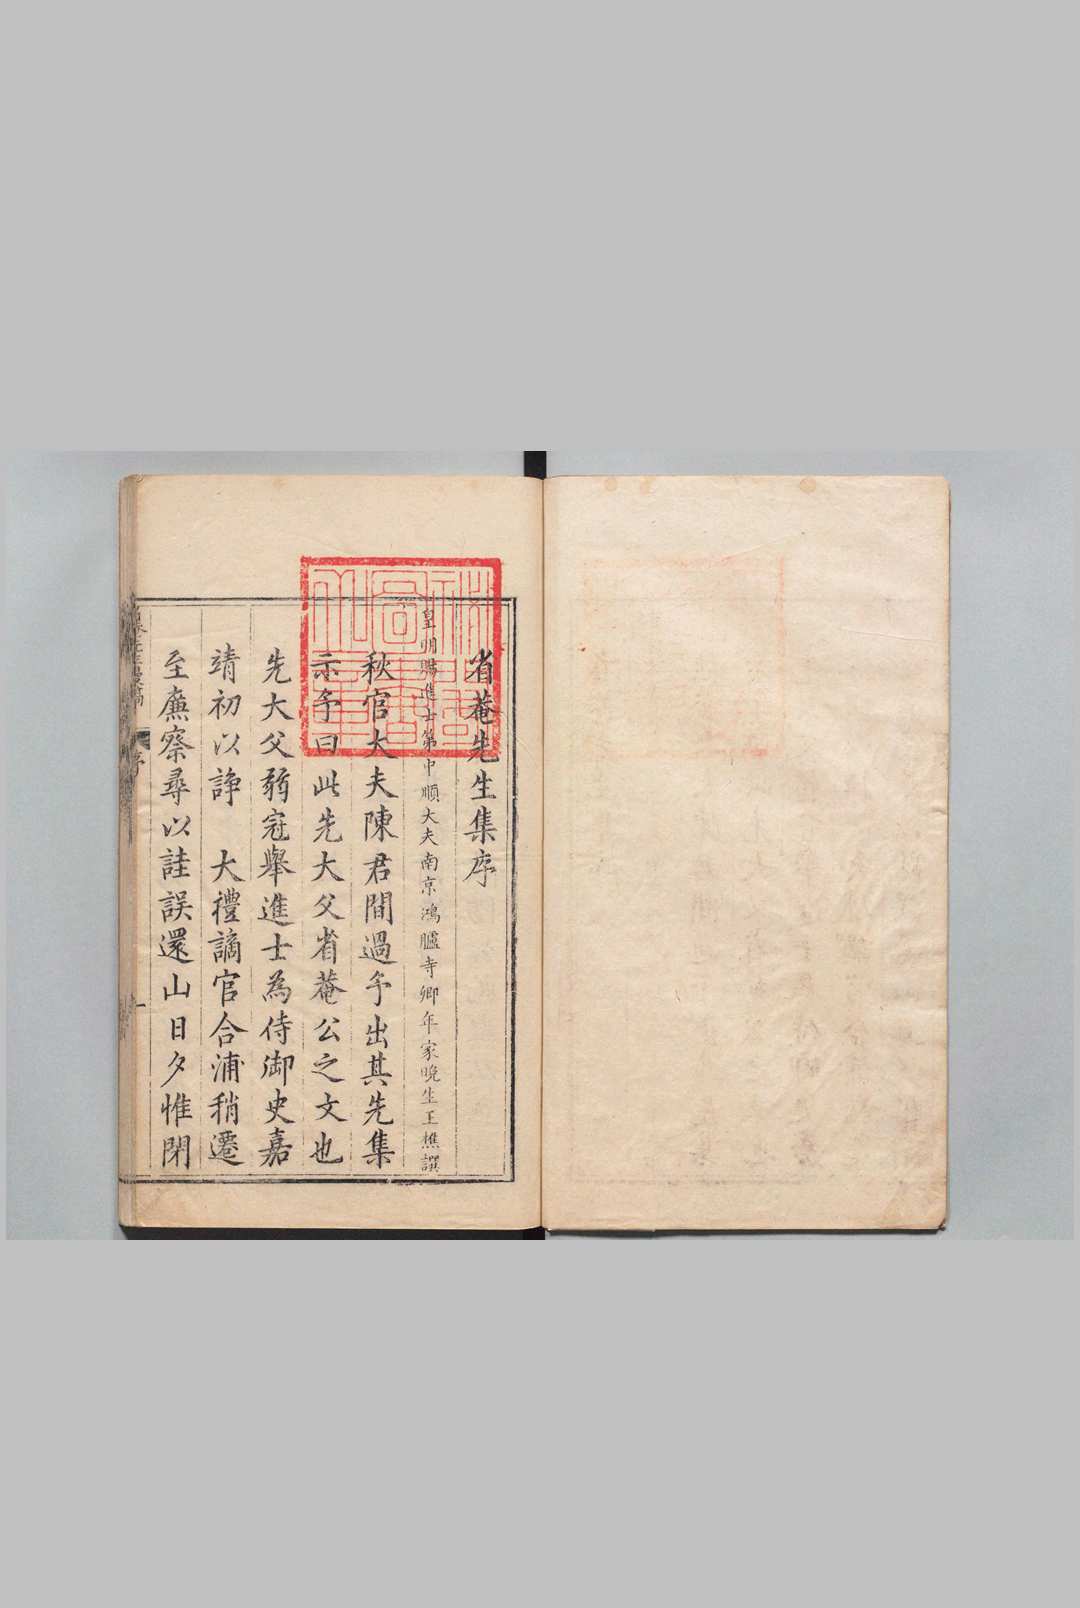 省菴先生集序
皇明賜進士第中順大夫南京鴻臚寺卿年家晚生王樵譔
秋官大夫陳君間過予出其先集
示予曰此先大父省菴公之文也
先大父弱冠舉進士為侍御史嘉
靖初以諍　大禮謫官合浦稍遷
至廉察尋以詿誤還山日夕惟閉
序
一